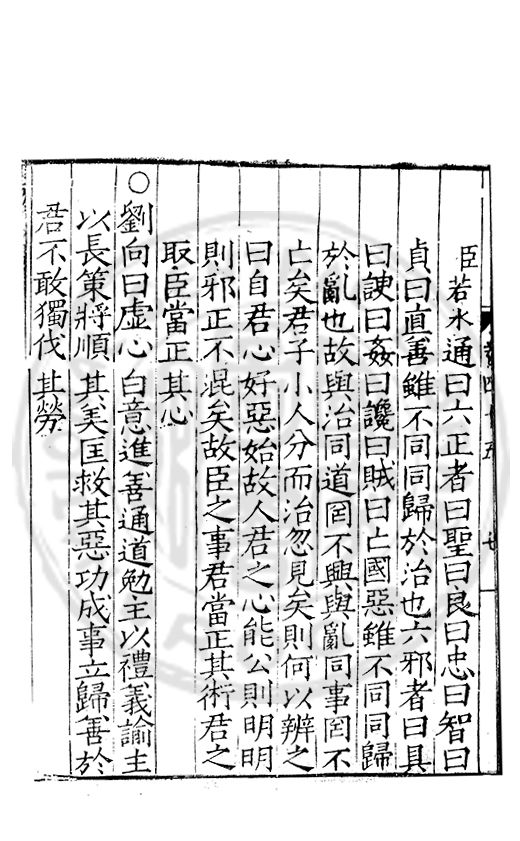 臣若水通曰六正者曰聖曰良曰忠曰智曰
貞曰直善雖不同同歸於治也六邪者曰具
曰諛曰姦曰讒曰賊曰亡國惡雖不同同歸
於亂也故與治同道罔不興與亂同事罔不
亡矣君子小人分而治忽見矣則何以辨之
曰自君心好惡始故人君之心能公則明明
則邪正不混矣故臣之事君當正其術君之
取臣當正其心
○劉向曰虛心白意進善通道勉主以禮義諭主
以長策將順其美匡救其惡功成事立歸善於
君不敢獨伐其勞